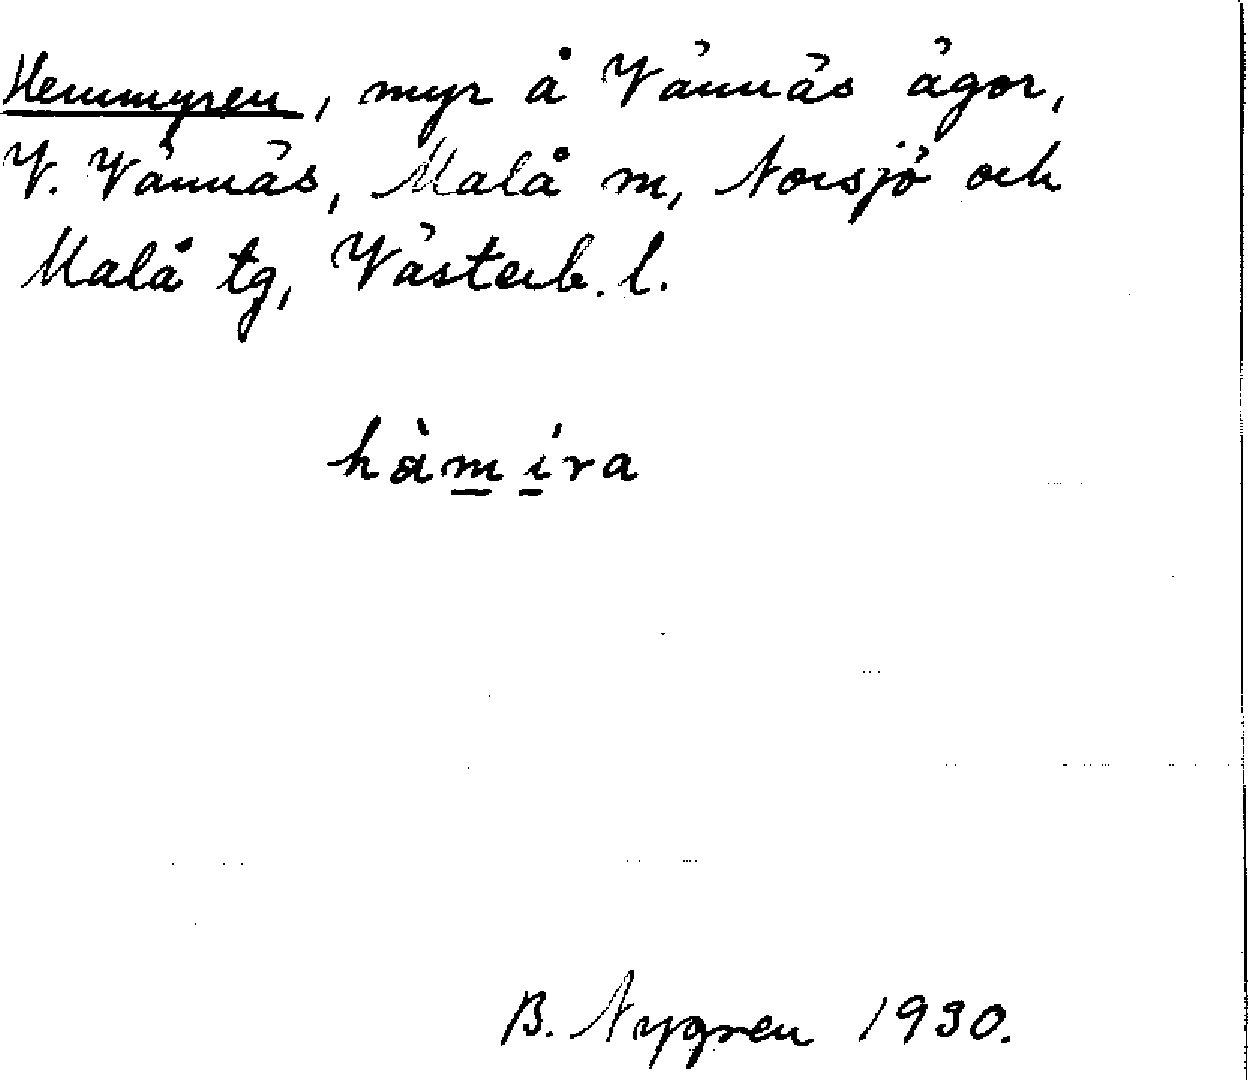 Hemmyren, myr å Vännäs ägor,
V. Vännäs, Malå m, Norsjö och
Malå tg, Västerb. l.
hàm̲ i̲ra
B. Nygren 1930.